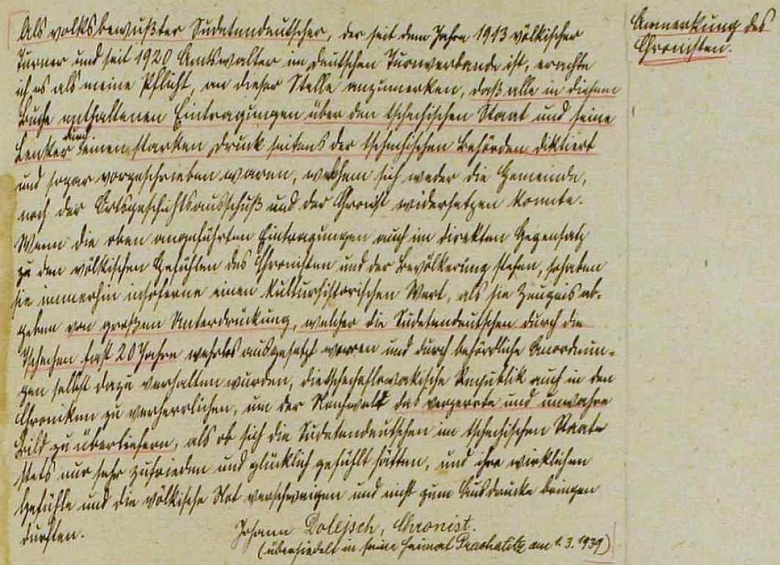 Als volksbewußter Sudetendeutscher, der seit dem Jahre 1913 völkischer
Turner und seit 1920 Amtswalter im deutschen Turnverbande ist, erachte
ich es als meine Pflicht, an dieser Stelle anzumerken, daß alle in diesem
Buche enthaltenen Eintragungen über den tschechischen Staat und seine
Lenker durch einen starken Druck seitens der tschechischen Behörden diktiert
und sogar vorgeschrieben waren, welchem sich weder die Gemeinde,
noch der Ortsgeschichtsausschuß und der Chronist widersetzen konnte.
Wenn die oben angeführten Eintragungen auch im direkten Gegensatz
zu den völkischen Gefühlen des Chronisten und der Bevölkerung stehen, so haben
sie immerhin insoferne einen kulturhistorischen Wert, als sie Zeugnis ab-
geben von großen Unterdrückung, welcher die Sudetendeutschen durch die
Tschechen fast 20 Jahre wehrlos ausgesetzt waren und durch behördliche Anordnun-
gen selbst dazu verhalten wurden, die tschechoslowakische Republik auch in den
Chroniken zu verherrlichen, um der Nachwelt das verzerrte und unwahre
Bild zu überliefern, als ob sich die Sudetendeutschen im tschechischen Staate
stets nur sehr zufrieden und glücklich gefühlt hätten, und ihre wirklichen
Gefühle und die völkische Not verschweigen und nicht zum Ausdrucke bringen
durften.
Johann Dolejsch, Chronist.
(übersiedelt in seine Heimat Prachatitz am 1.3.1939)
Anmerkung des
Chronisten.